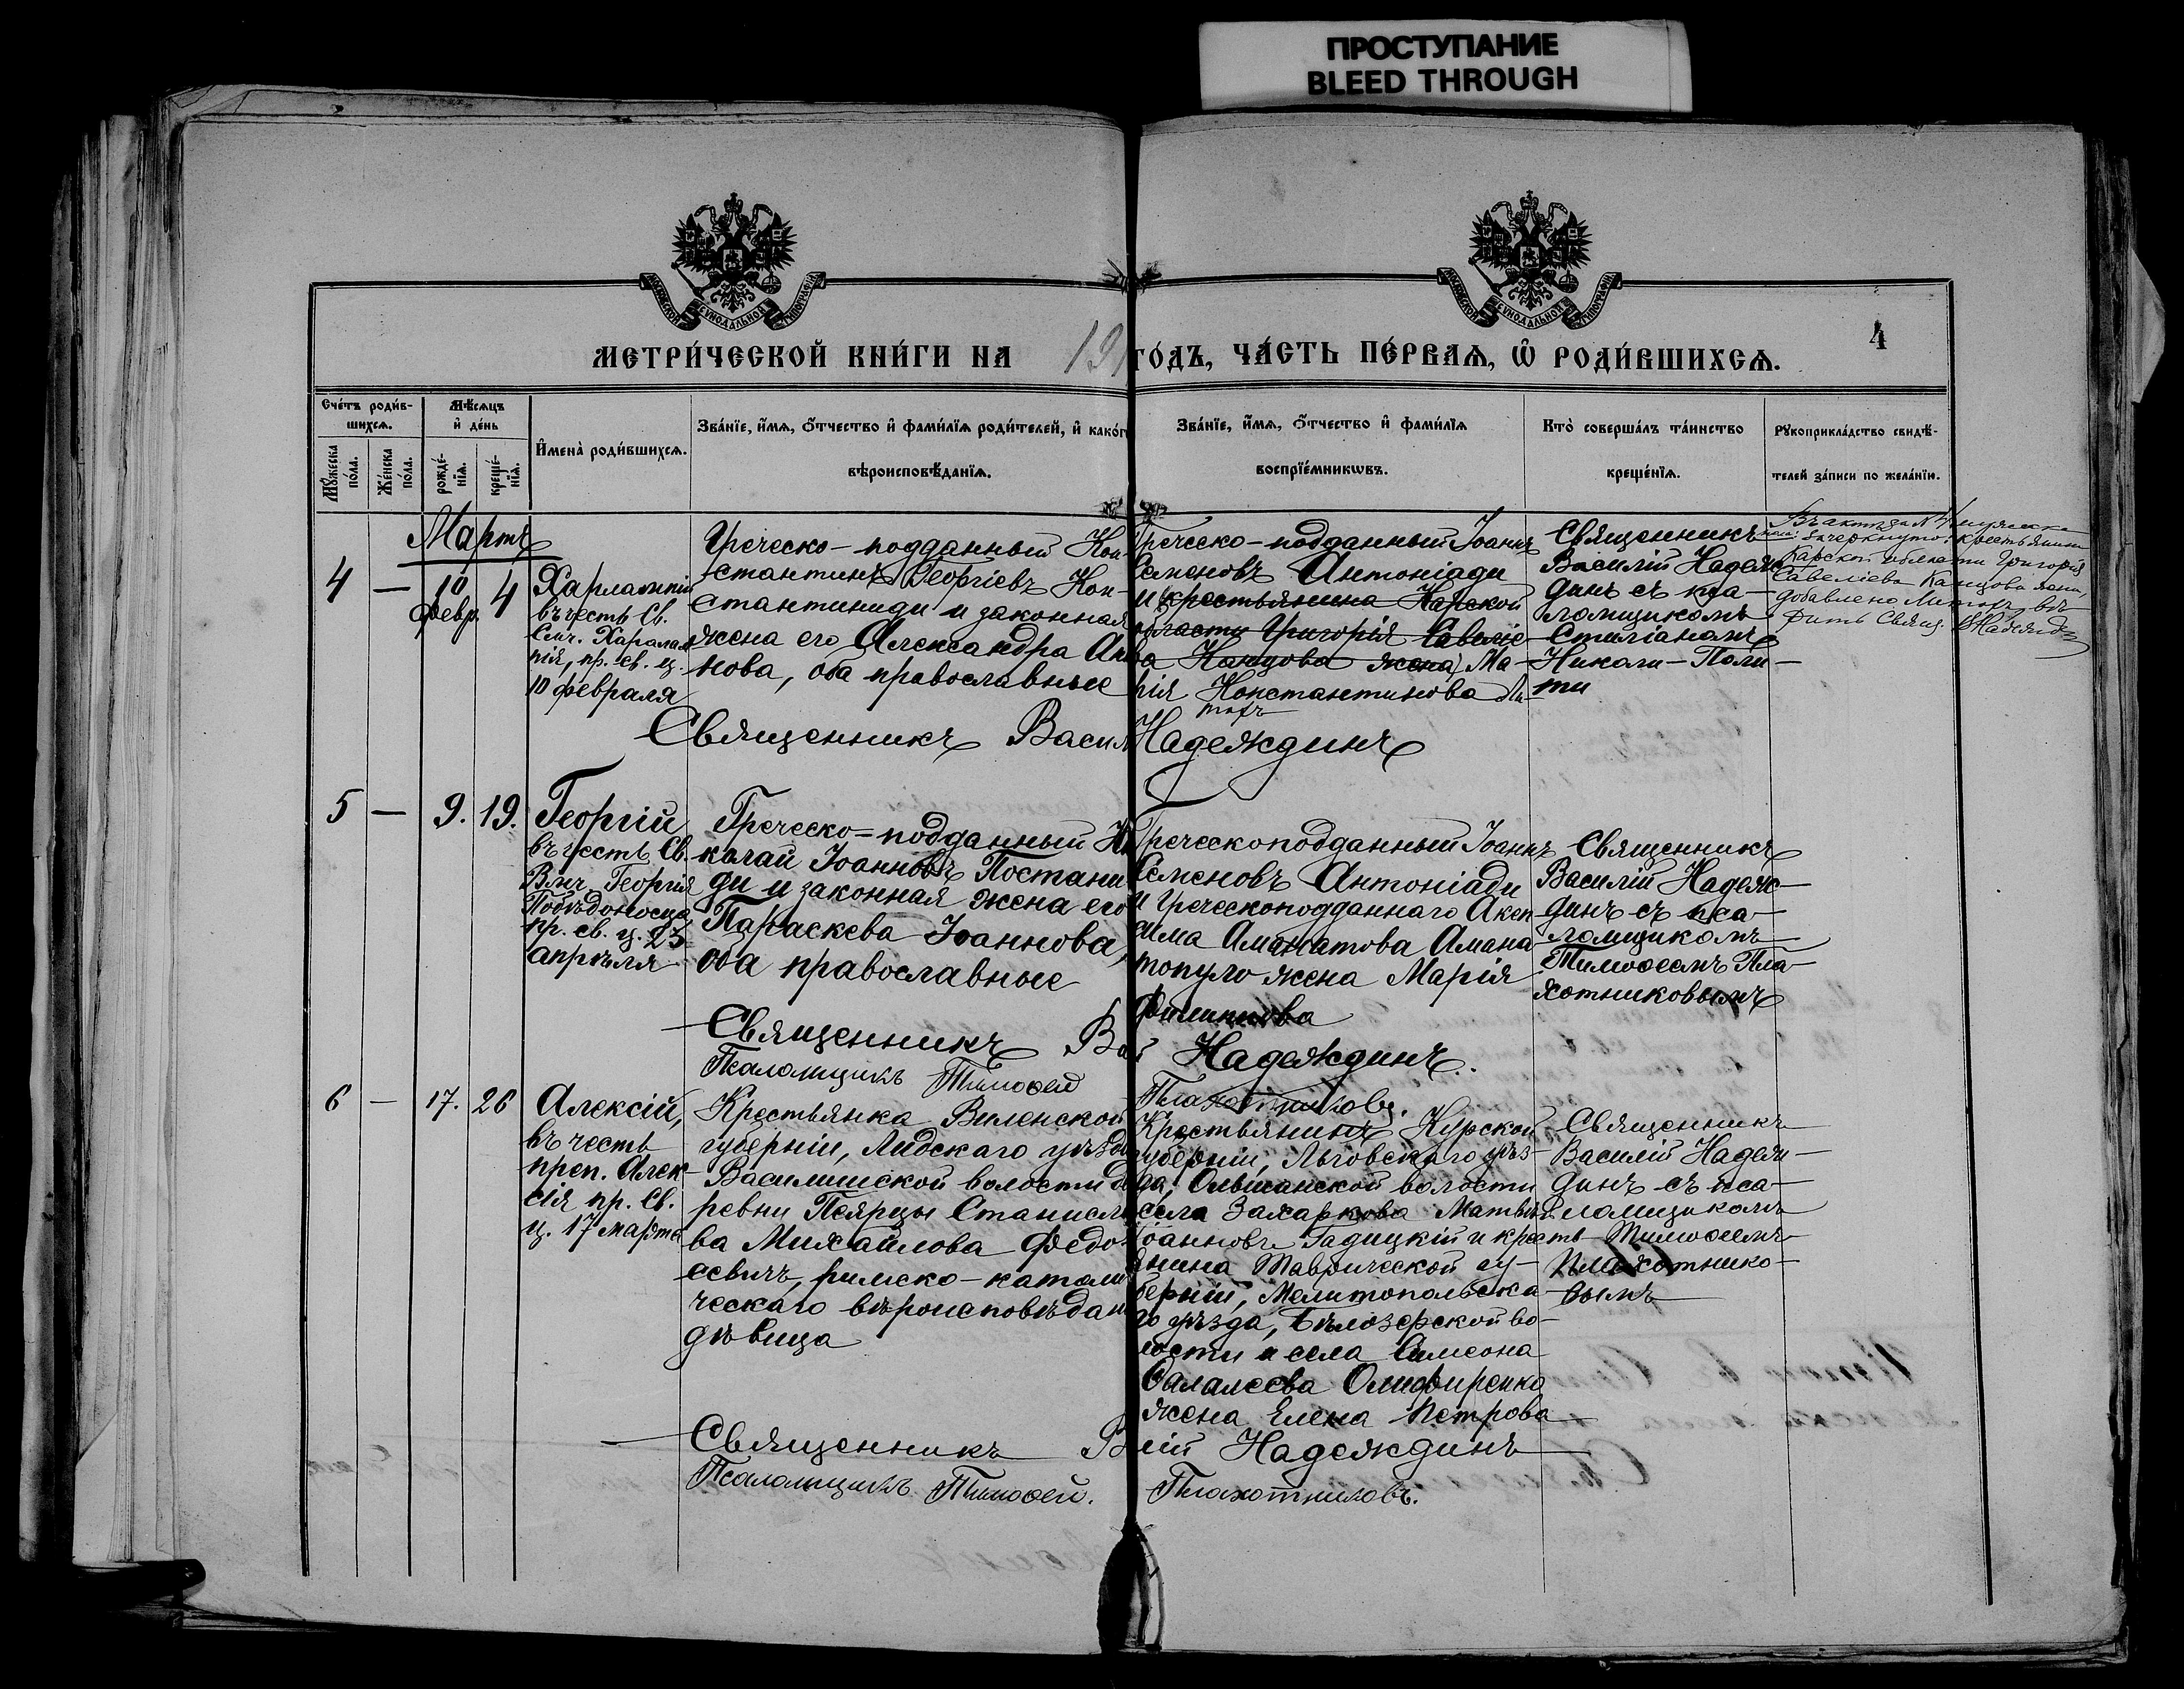 ПРОСТУПАНИЕ
BLEED THROUGH
МЕТРИ́ЧЕСКОЙ КНИ́ГИ НА 191
ГО́ДЪ, ЧА́СТЬ ПЕ́РВАѦ, Ѡ҆ РОДИ́ВШИХСѦ.
4
Сче́тъ роди́в-
шихсѧ.
Мꙋ́жеска по́ла.
Же́нска по́ла.
Мѣ́сѧцъ
и҆ де́нь
рожде́-
нїѧ.
креще́-
нїѧ.
И҆мена̀ роди́вшихсѧ.
Зва́нїе, и҆́мѧ, ѻ҆́тчество и҆ фами́лїѧ роди́телей, и҆ како́г
вѣроисповѣ́данїѧ.
Зва́нїе, и҆́мѧ, ѻ҆́тчество и҆ фами́лїѧ
воспрїе́мникѡвъ.
Кто̀ соверша́лъ та́инство
креще́нїѧ.
Рꙋкоприкла́дство свидѣ́-
телей за́писи по жела́нїю.
Мартъ
4
—
10
февр.
4
Харлампій
въ честь Св.
Смч. Харалам
пія, пр. св. ц.
10 февраля
Греческо-подданный Кон-
стантинъ Георгіевъ Кон-
стантиниди и законная
жена его Александра Ан
нова, оба православные
Греческо-подданный Іоаннъ
Семеновъ Антоніади
и крестьянина Карской
области Григорія Савеліе-
ва Канцова жена Ма-
рія Константинова Ли-
тохъ
Священникъ
Василій Надеж-
динъ съ пса-
ломщикомъ
Стиліаномъ
Никаги-Поли-
ти
Карской области Григорія
Савеліева Канцова жена,
добавлено Литохъ, вѣ
рить Свящ. В Надежд
Священникъ Васил
Надеждинъ
5
—
9.
19.
Георгій
въ честь Св.
Вмч. Георгія
Побѣдоносца,
пр. св. ц. 23
апрѣля
Греческо-подданный Ни
колай Іоанновъ Постани
ди и законная жена его
Параскева Іоаннова,
оба православные
Греческоподданный Іоаннъ
Семеновъ Антоніади
и Греческоподданнаго Аксен
Аманатова Амана
топуло жена Марія
Филиппова
Священникъ
Василій Надеж-
динъ съ пса-
ломщикомъ
Тимоѳеемъ Пла-
хотниковымъ
Священникъ Ва
й Надеждинъ.
Псаломщикъ Тимоѳей
Плахотниковъ.
6
—
17.
26
Алексій,
въ честь
преп. Алек-
сія пр. св.
ц. 17 марта
Крестьянка Виленской
губерніи, Лидскаго уѣзда
Василишской волости де
ревни Пеярцы Станисла
ва Михайлова Федо-
севичъ, римско-католи
ческаго вѣроисповѣдан
дѣвица
Крестьянинъ Курской
губерніи, Льговскаго уѣз-
да, Ольшанской волости
села Захаркова Матвѣй
Іоанновъ Гадицкій и кресть
янина Таврической гу-
берніи, Мелитопольска-
го уѣзда, Бѣлозерской во-
лости и села Симеона
Олифиренко
жена Елена Петрова
Священникъ
Василій Надеж-
динъ съ пса-
ломщикомъ
Тимоѳеемъ
Плахотнико-
вымъ
Священникъ В
лій Надеждинъ
Псаломщикъ Тимоѳей.
Плахотниковъ.